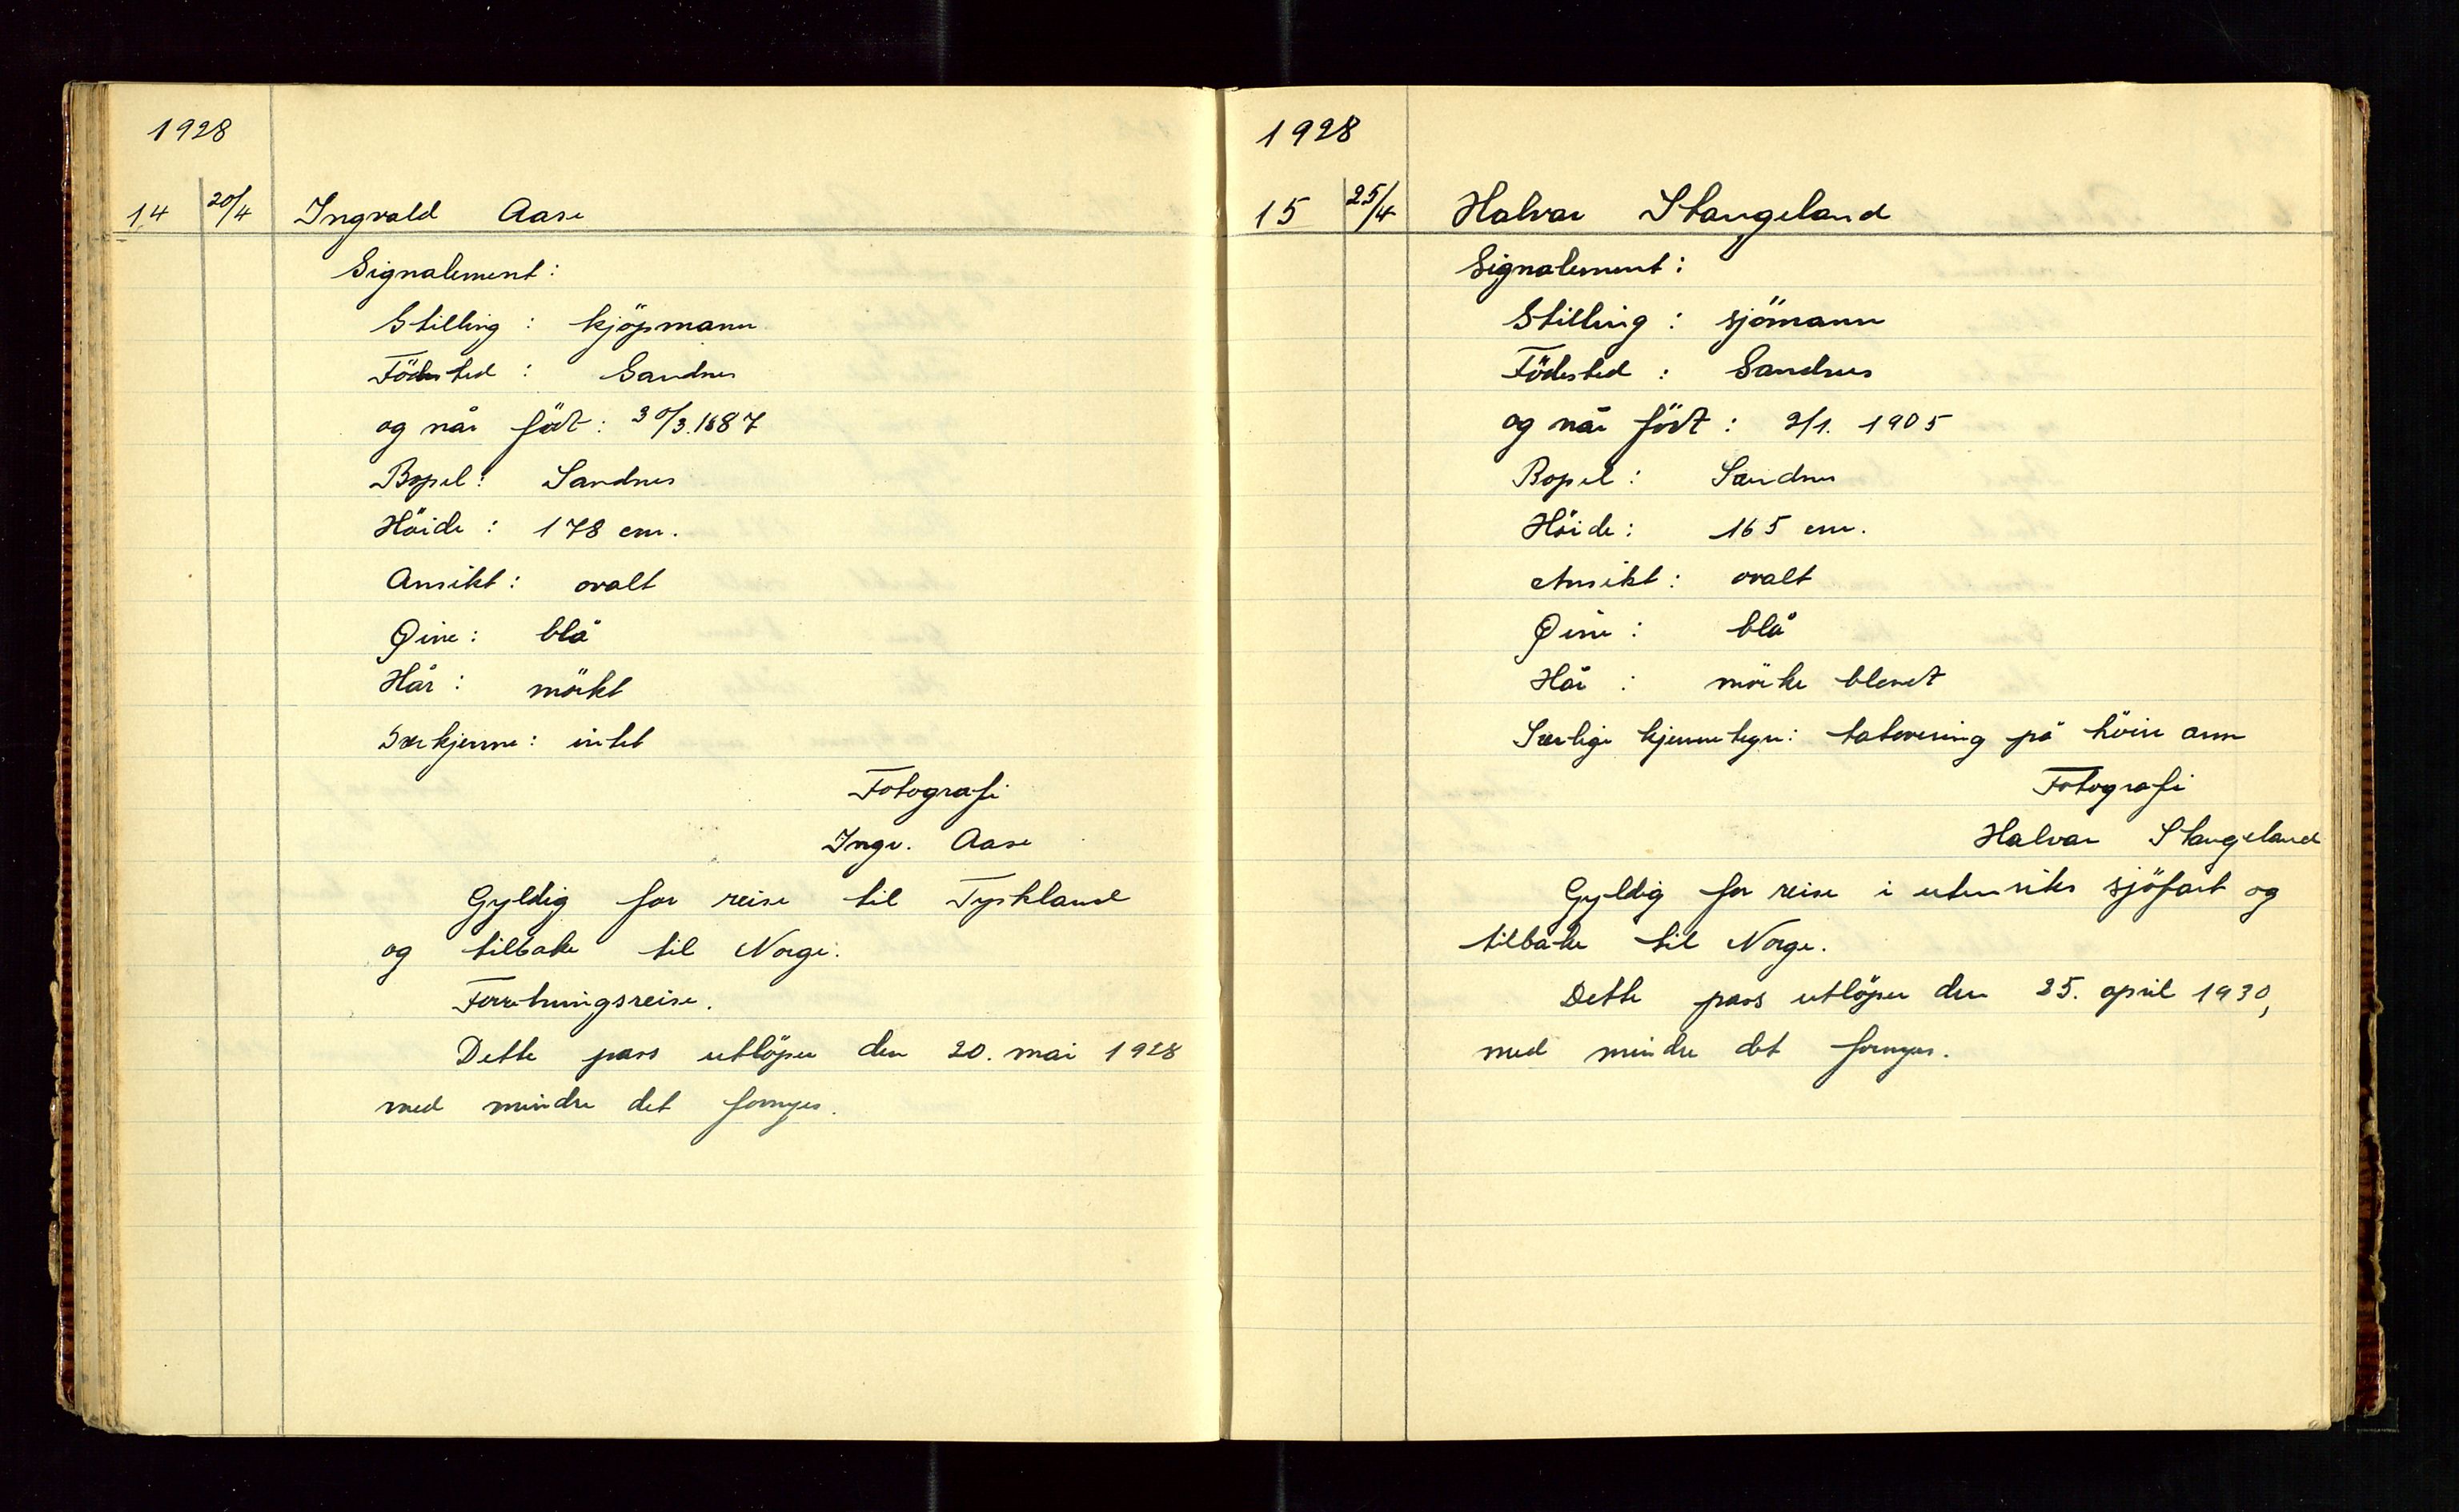 1928
14 20/4 Ingvald Aase
Signalement:
Stilling: kjöpmann
Födested: Sandnes
og når födt: 30/3.1887
Bopel: Sandnes
Höide: 178 cm.
Ansikt: ovalt
Øine: blå
Hår: mörkt
Særkjenne: intet
Fotografi
Ingv. Aase
Gyldig for reise til Tyskland
og tilbake til Norge.
Forretningsreise.
Dette pass utlöper den 20. mai 1928
med mindre det fornyes.
1928
15 25/4 Halvar Stangeland
Signalement:
Stilling: sjömann
Födested: Sandnes
og når födt: 2/1. 1905
Bopel: Sandnes
Höide: 165 cm.
Ansikt: ovalt
Øine: blå
Hår: mörke blondt
Særlige kjennetegn: tatovering på höire arm
Fotografi
Halvar Stangeland
Gyldig for reise i utenriks sjöfart og
tilbake til Norge.
Dette pass utlöper den 25. april 1930,
med mindre det fornyes.